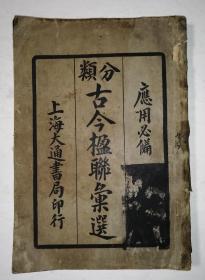 應用必備
分類
古今楹聯彙選
上海大通書局印行